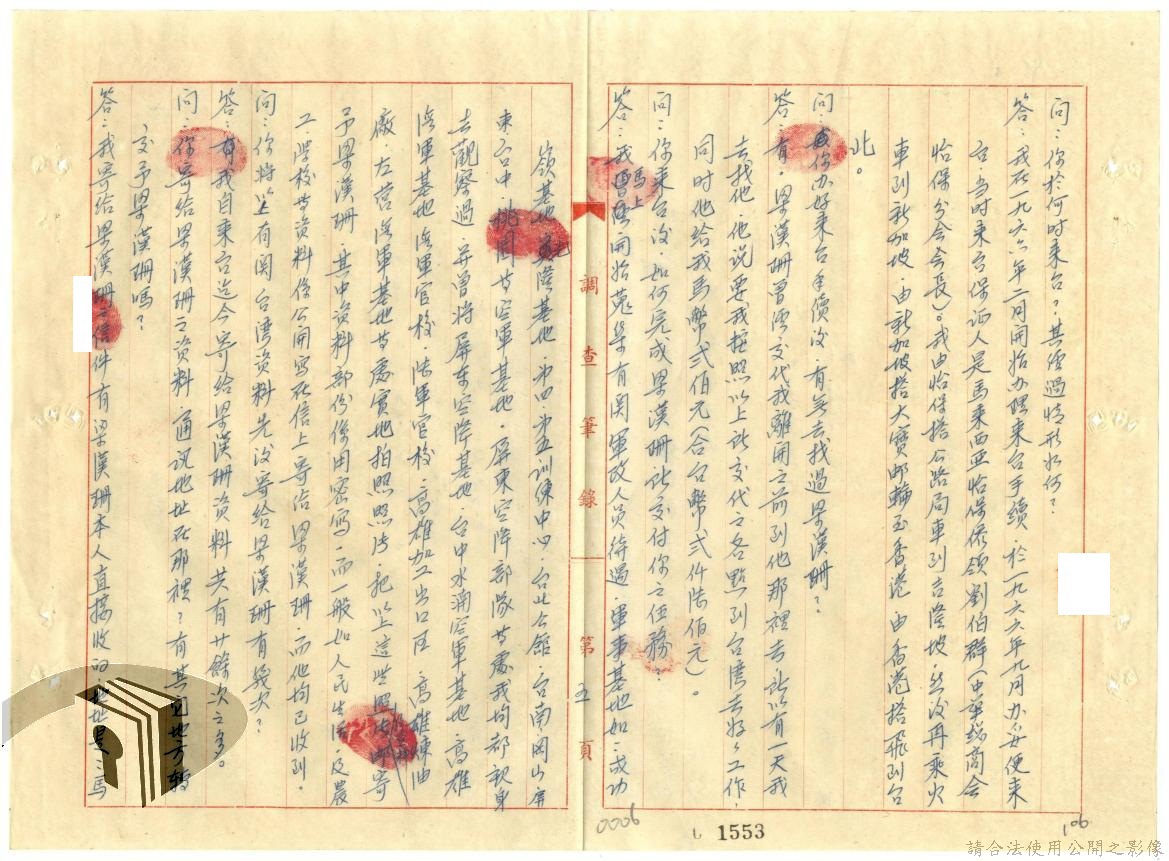 問：你於何時來台？其經過情形如何？
答：我在一九六六年二月開始办理來台手續，於一九六六年九月办妥便來
台，当时來台保证人是馬來西亞怡保僑領劉伯群（中華總商会
怡保分会会長）。我由怡保搭公路局車到吉隆坡，然後再乘火
車到新加坡，由新加坡搭大寶邮輪至香港，由香港搭飛到台
北。
問：你办好來台手續後，有無去找過梁漢珊？
答：有，梁漢珊曾經交代我離開之前到他那裡去，所以有一天我
去找他，他說要我按照以上所交代之各點到台灣去好々工作，
同时他給我馬幣弍伯元（合台幣弍仟陸伯元）。
問：你來台後，如何完成梁漢珊所交付你之任務？
答：我馬上開始蒐集有関軍政人員待遇，軍事基地如：成功
調查筆錄 第五頁
嶺基地，陸基地，第四、第五訓練中心，台北公館，台南，岡山，屏
東，台中，桃園等空軍基地，屏東空降部隊等處我均都親身
去觀察過，并曾將屏东空降基地，台中水湳空軍基地，高雄
海軍基地，海軍官校，陸軍官校，高雄加工出口區，高雄煉油
廠，左营海軍基地等處實地拍照照片，把以上這些照片寄
予梁漢珊，其中资料部份係用密写，而一般如人民生活及農
工、学校等资料係公開写在信上寄給梁漢珊，而他均已收到。
問：你將以上有関台湾资料先後寄給梁漢珊有幾次？
答：我自來台迄今寄給梁漢珊资料共有廿餘次之多。
問：你寄給梁漢珊之资料，通訊地址在那裡？有其它地方轉
交予梁漢珊嗎？
答：我寄給梁漢珊之信件有梁漢珊本人直接收的，地址是：馬
0006
1553
106
請合法使用公開之影像